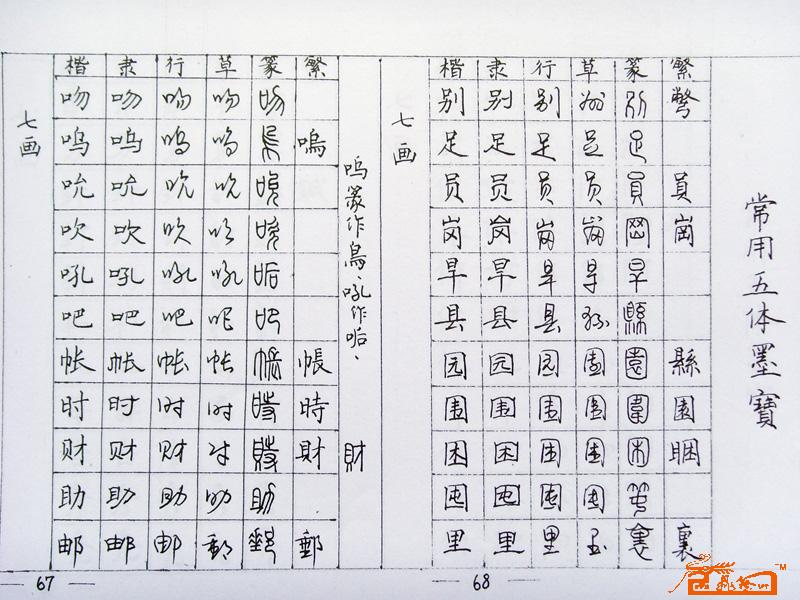 常用五体墨寶
楷 隶 行 草 篆 繁
别 别 别 别 别 彆
足 足 足 足 足
员 员 员 员 員 員
岗 岗 岗 岗 岡 崗
旱 旱 旱 旱 旱
县 县 县 县 縣
园 园 园 园 園 縣
围 围 围 围 圍 園
困 困 困 困 困 睏
囤 囤 囤 囤
里 里 里 里 裏 裏
七画
68
嗚篆作烏、吼作㖃、
財
楷 隶 行 草 篆 繁
吻 吻 吻 吻 吻
呜 呜 呜 呜 烏 嗚
吮 吮 吮 吮 吮
吹 吹 吹 吹 吹
吼 吼 吼 吼 㖃
吧 吧 吧 吧 吧
帐 帐 帐 帐 帳 帳
时 时 时 时 時 時
财 财 财 财 財 財
助 助 助 助 助
邮 邮 邮 邮 郵 郵
七画
67